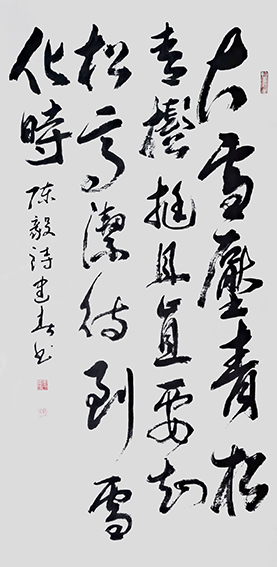 大雪壓青松
青松挺且直要知
松高潔待到雪
化時
陳毅詩建春书